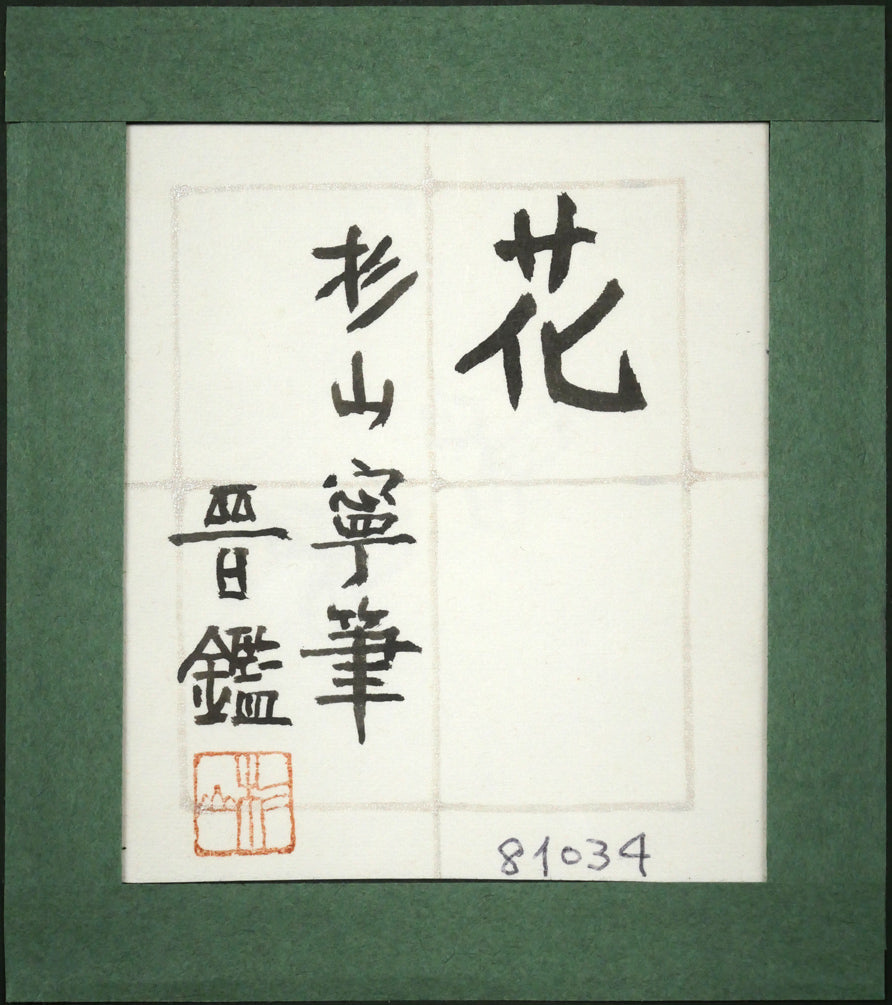 花
杉山寧筆
晋鑑
81034